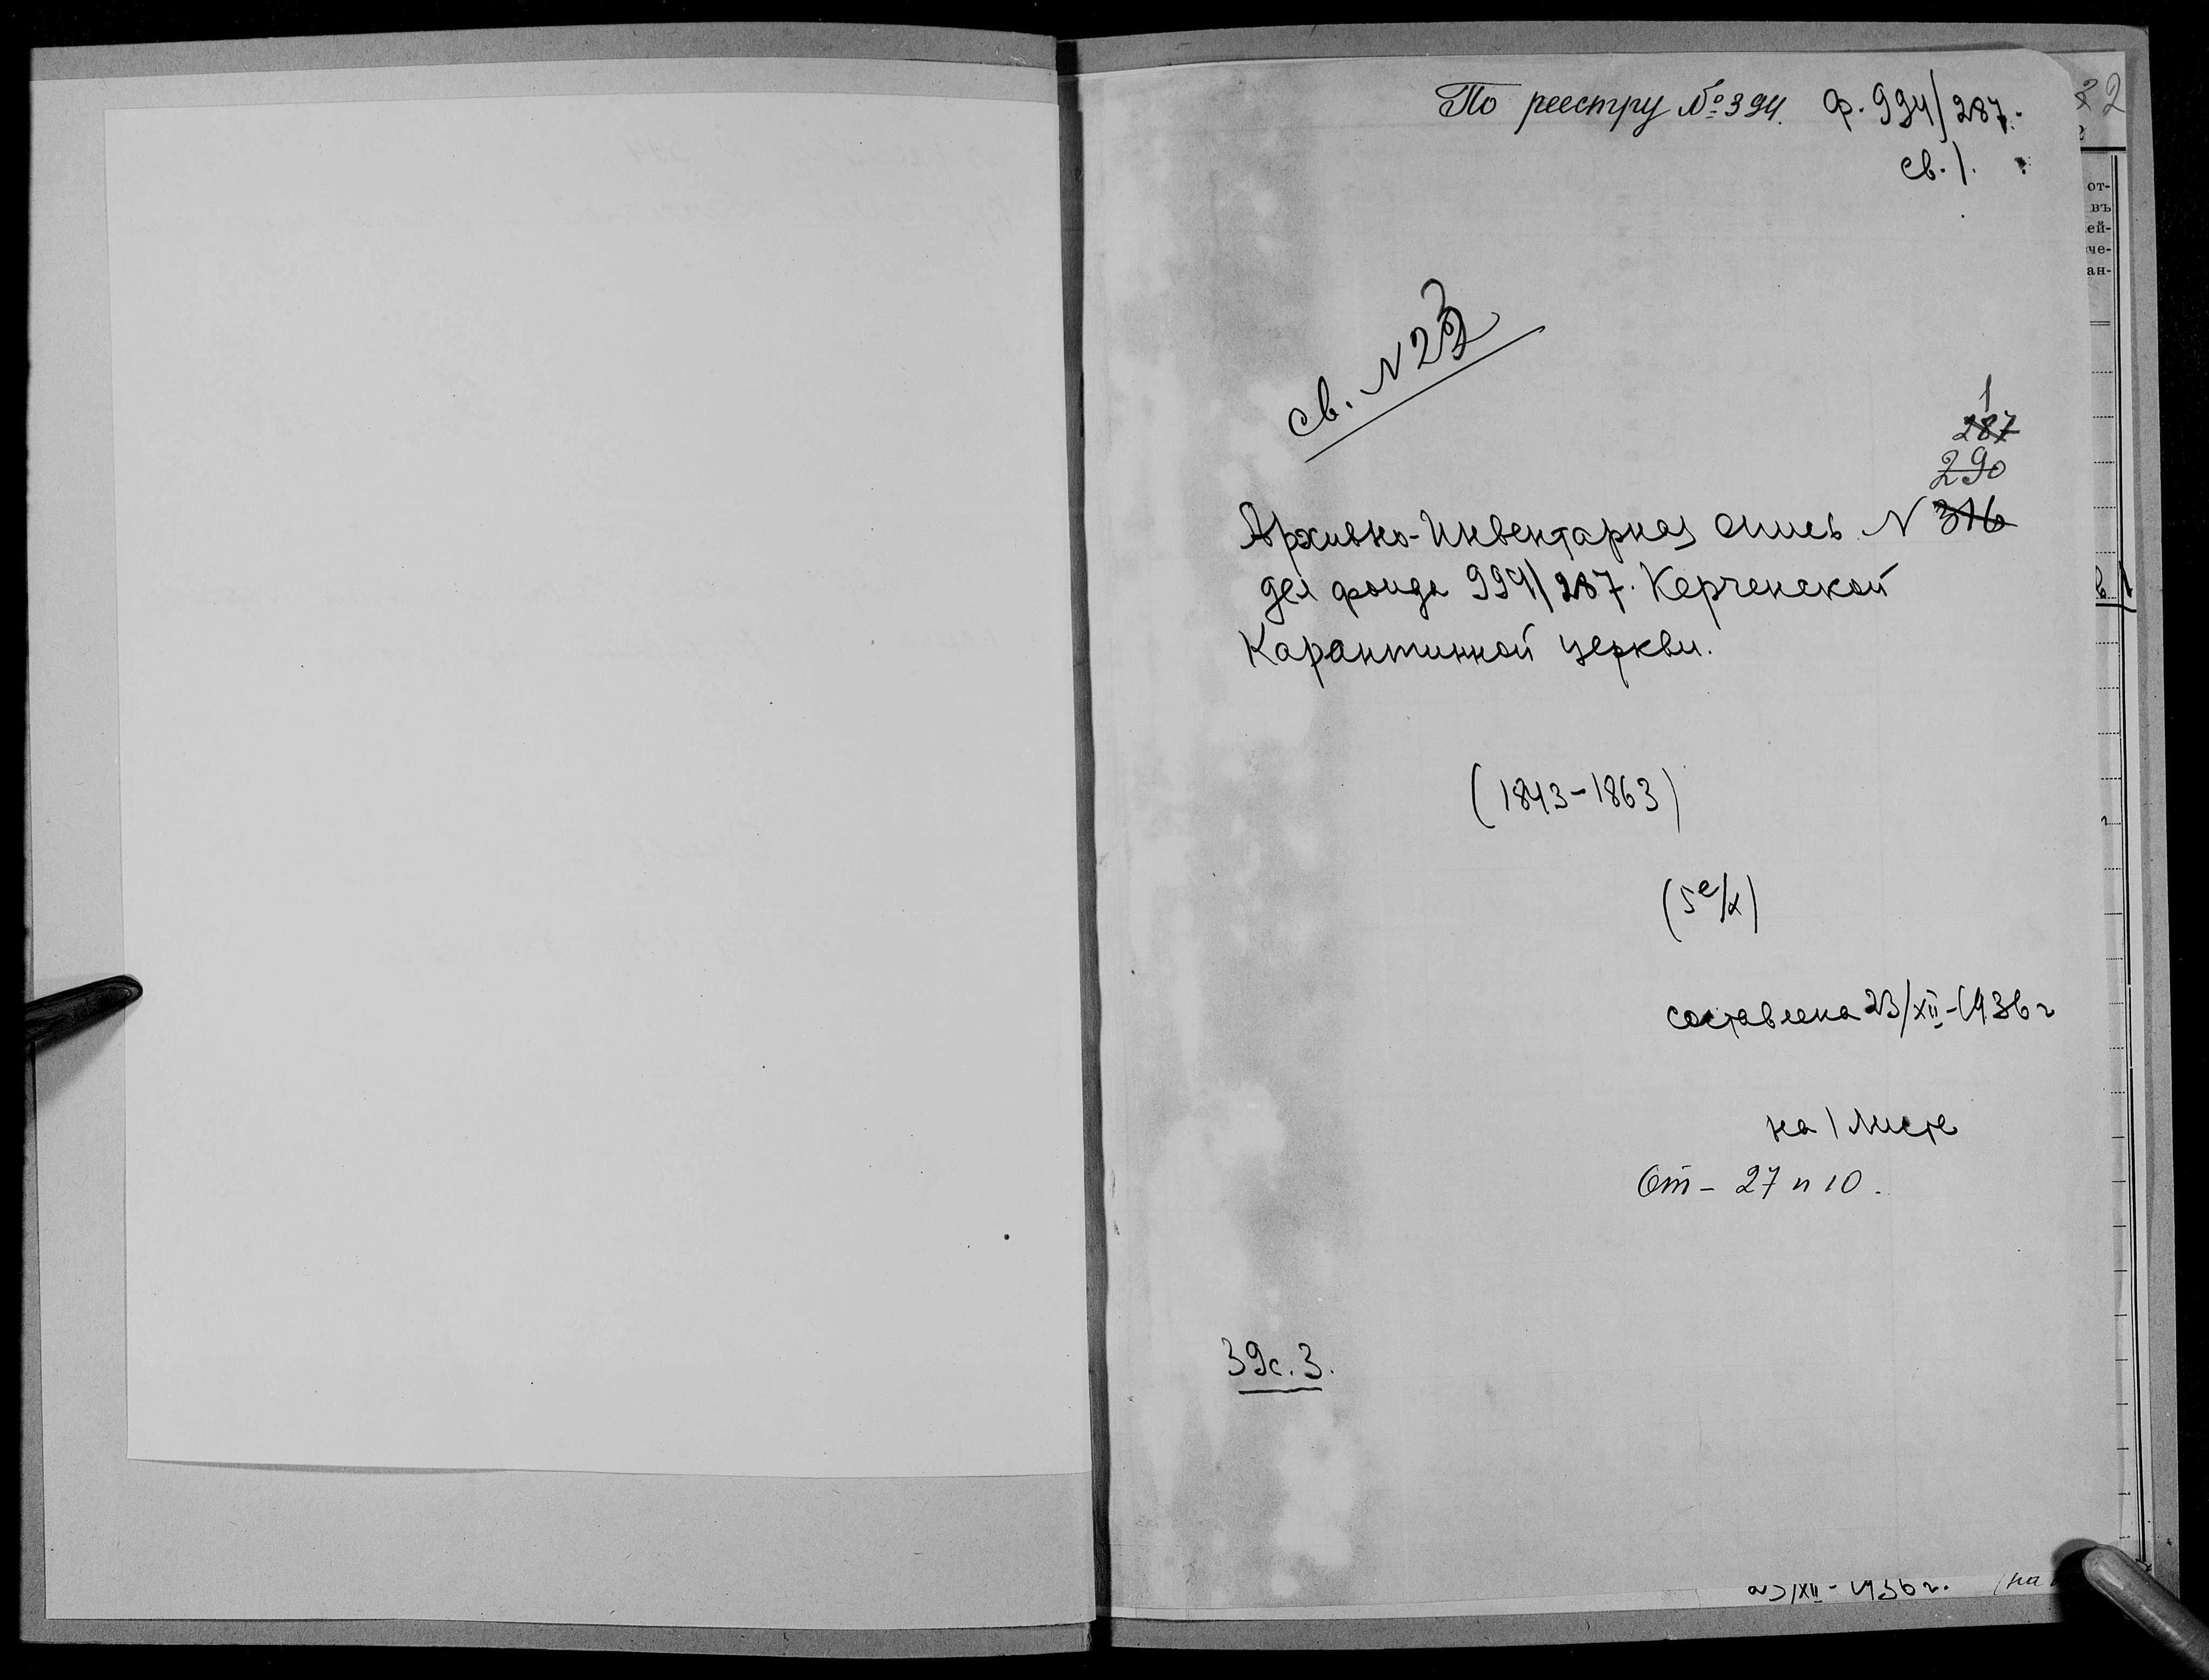 По реестру №394. Ф. 994/287.
св. 1.
св. N 23
1
287
290
Архивно-Инвентарная опись N 316
дел фонда 994/287. Керченской
Карантинной церкви.
(1843-1863)
(5 е/х)
составлена 23/XII-1936 г
на 1 листе
От- 27 п 10.
39с.3.
/XII-1936 г. (на
22
от-
въ
ей-
че-
ан-